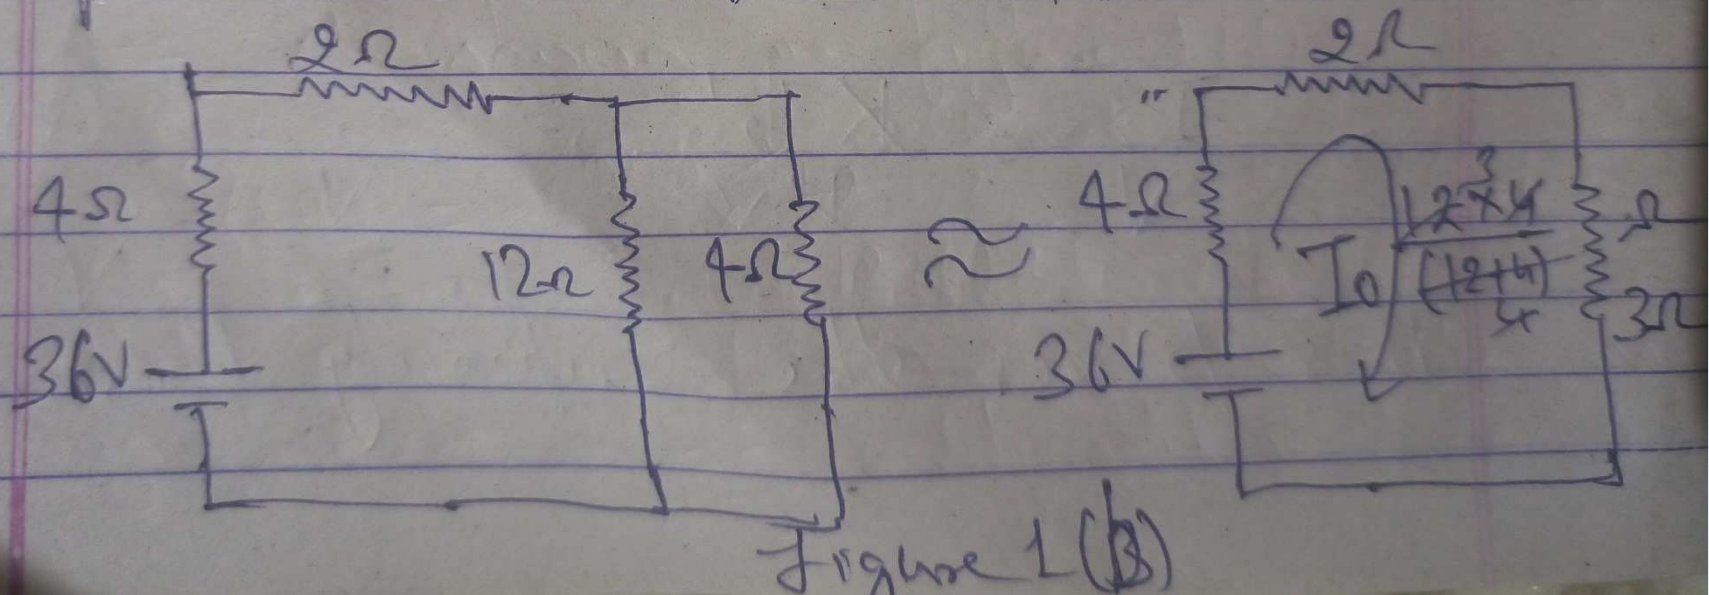 2Ω
4Ω
12Ω
4Ω
36V
≈
2Ω
4Ω
I₀
3
12×4
(12+4)
4
Ω
3Ω
36V
Figure 1(B)